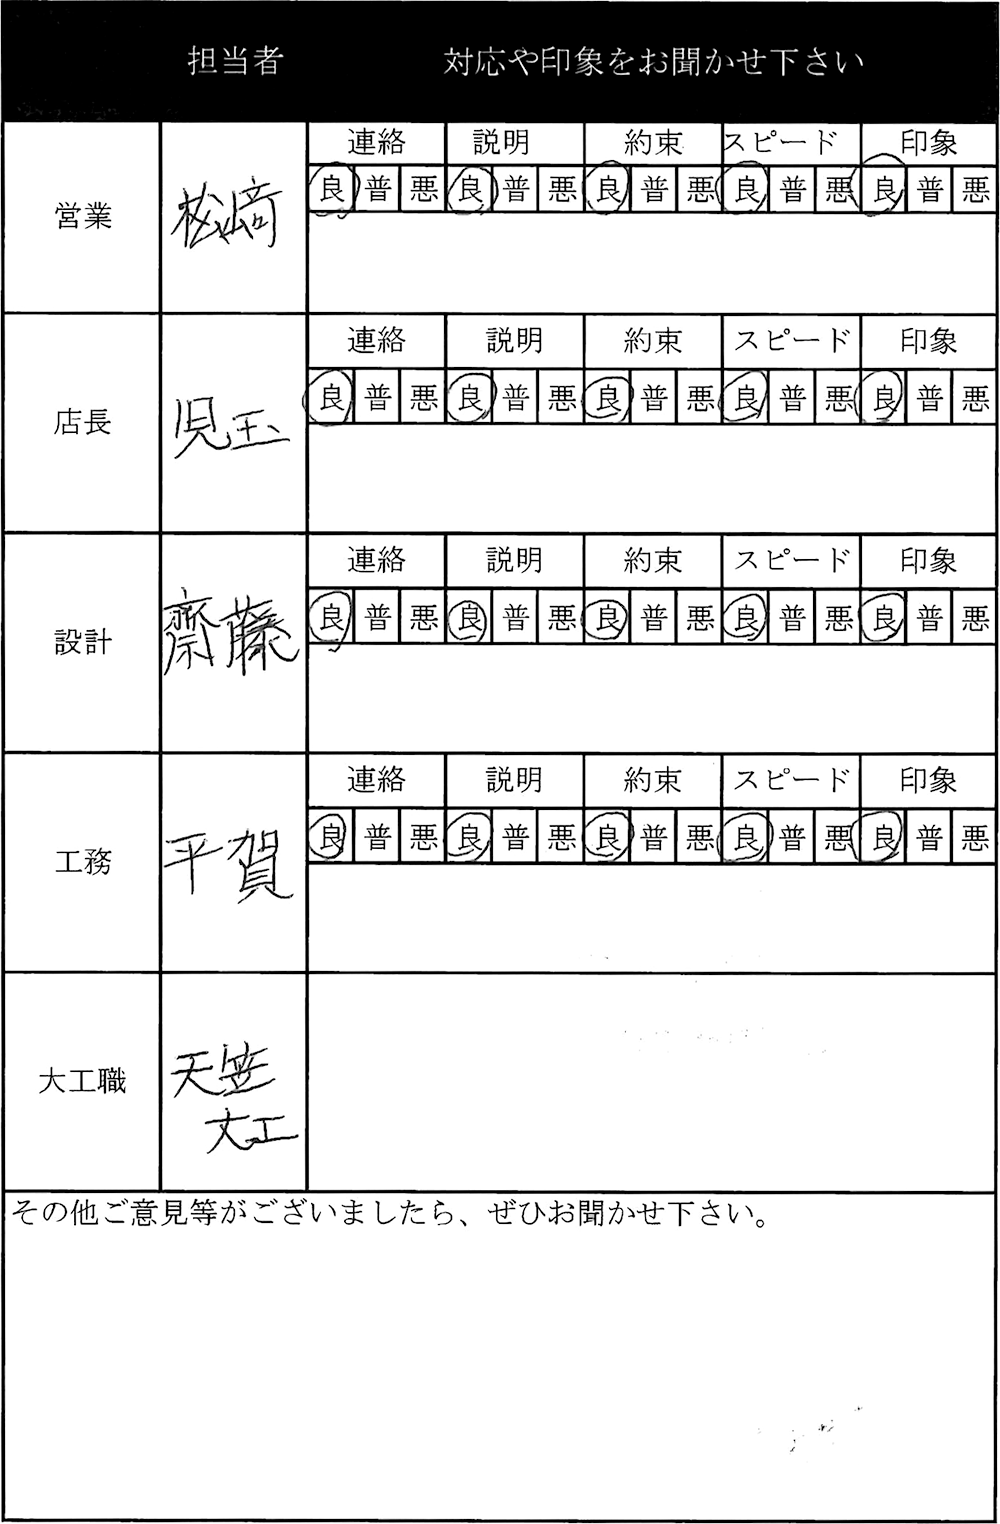 担当者 対応や印象をお聞かせ下さい
連絡 説明 約束 スピード 印象
良 普 悪 良 普 悪 良 普 悪 良 普 悪 良 普 悪
営業 松﨑
連絡 説明 約束 スピード 印象
良 普 悪 良 普 悪 良 普 悪 良 普 悪 良 普 悪
店長 児玉
連絡 説明 約束 スピード 印象
良 普 悪 良 普 悪 良 普 悪 良 普 悪 良 普 悪
設計 齋藤
連絡 説明 約束 スピード 印象
良 普 悪 良 普 悪 良 普 悪 良 普 悪 良 普 悪
工務 平賀
大工職 天笠
大工
その他ご意見等がございましたら、ぜひお聞かせ下さい。